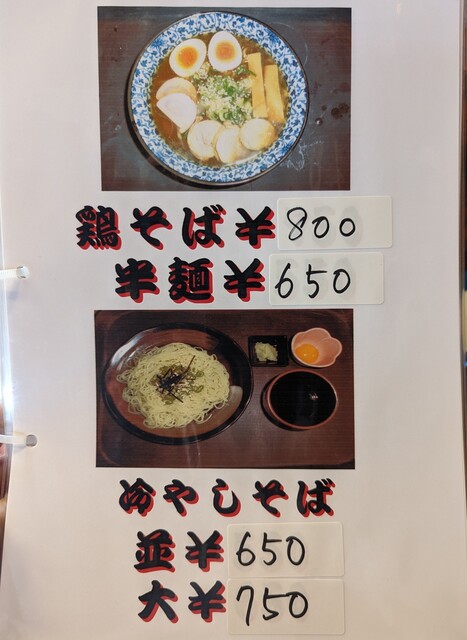 鶏そば¥800
半麺¥650
冷やしそば
並¥650
大¥750